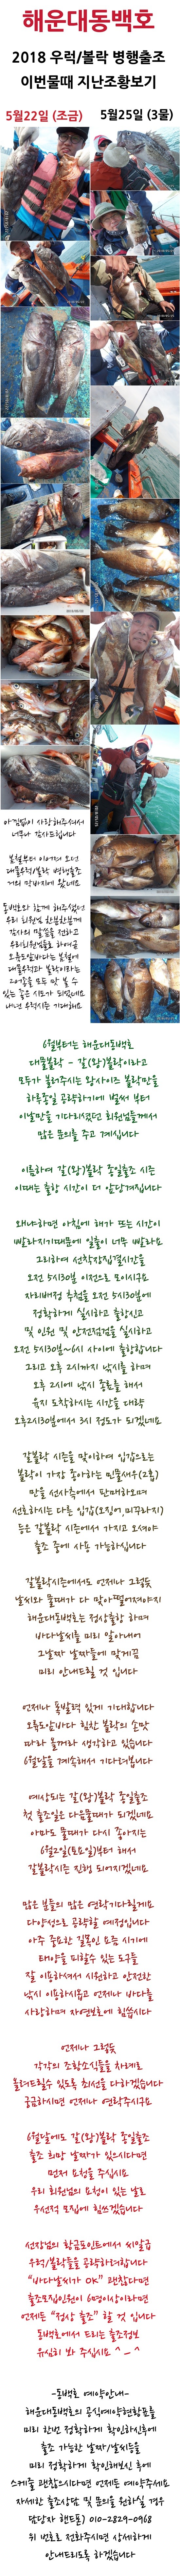 해운대동백호
2018 우럭/볼락 병행출조
이번물때 지난조황보기
5월22일 (조금)
5월25일 (3물)
아낌없이 사랑해주셔서
너무나 감사드립니다
봄철부터 이어져 오던
대물우럭/볼락 병행출조
거의 막바지에 왔네요
동백호와 함께 해주셨던
우리 회원님 한분한분께
감사의 말씀을 전하고
우리회원님들로 하여금
오륙도앞바다는 봄철에
대물우럭과 볼락이라는
고기들을 모두 만날 수
있는 좋은 시도가 되었네요
내년 우럭시즌 기대해요
6월부터는 해운대동백호
대물볼락 - 갈(왕)볼락이라고
모두가 불러주시는 왕사이즈 볼락만을
하루종일 공략하기에 벌써 부터
이날만을 기다리셨던 회원님들께서
많은 문의를 주고 계십니다
이름하여 갈(왕)볼락 종일출조 시즌
이때는 출항 시간이 더 앞당겨집니다
왜냐하면 아침에 해가 뜨는 시간이
빨라지기때문에 일출이 너무 빨라요
그리하여 선착장집결시간을
오전 5시30분 이전으로 모이시구요
자리배정 추첨을 오전 5시30분에
정확하게 실시하고 출항신고
및 인원 및 안전점검을 실시하고
오전 5시30분~6시 사이에 출항합니다
그리고 오후 2시까지 낚시를 하며
오후 2시에 낚시 종료를 해서
육지 도착하시는 시간을 대략
오후2시30분에서 3시 정도가 되겠네요
갈볼락 시즌을 맞이하여 입감으로는
볼락이 가장 좋아하는 민물새우(2통)
만을 선사측에서 단배하오며
선호하시는 다른 입감(오징어,미꾸라지)
등은 갈볼락 시즌에서 가지고 오셔야
출조 중에 사용 가능하십니다
갈볼락시즌에서도 언제나 그렇듯
날씨와 물때가 다 맞아떨어져야지
해운대동백호는 정상출항 하며
바다날씨를 미리 알아내어
그날짜 날짜들에 맞게끔
미리 안내드릴 것 입니다
언제나 폭발력 있게 기대합니다
오륙도앞바다 힘찬 볼락의 손맛
따라 올꺼라 생각하고 있습니다
6월달을 계속해서 기다려봅니다
예상되는 갈(왕)볼락 종일출조
첫 출조일은 다음물때가 되겠네요
아마도 물때가 다시 좋아지는
6월2일(토요일)부터 해서
갈볼락시즌 진행 되어지겠네요
많은 분들의 많은 연락기다릴게요
다양성으로 공략할 예정입니다
아주 중요한 길목인 요즘 시기에
태양을 피할수 있는 도구들
잘 이용하셔서 시원하고 안전한
낚시 이용하시옵고 언제나 바다를
사랑하며 자연보호에 힘씁시다
언제나 그렇듯
각각의 조항소식들을 차례로
올려드릴수 있도록 최선을 다하겠습니다
궁금하시면 언제나 연락주시구요
6월달에도 갈(왕)볼락 종일출조
출조 희망 날짜가 있으시다면
먼저 요청을 주십시요
우리 회원님의 요청이 있는 날로
우선적 모집에 힘쓰겠습니다
선장님의 황금포인트에서 씨알급
우럭/볼락들을 공략하려합니다
"바다날씨가 OK" 괜찮다면
출조모집인원이 6명이상이라면
언제든 "정상 출조" 할 것 입니다
동백호에서 드리는 출조정보
유심히 봐 주십시요 ^_^
-동백호 예약안내-
해운대동백호의 공식예약현황표를
미리 한번 정확하게 확인하신후에
출조 가능한 날짜/날씨등을
미리 정확하게 확인해보신 후에
스케줄 괜찮으시다면 언제든 예약주세요
자세한 출조상담 및 문의를 원하실 경우
담당자 핸드폰) 010-2829-0968
위 번호로 전화주시면 상세하게
안내드리도록 하겠습니다